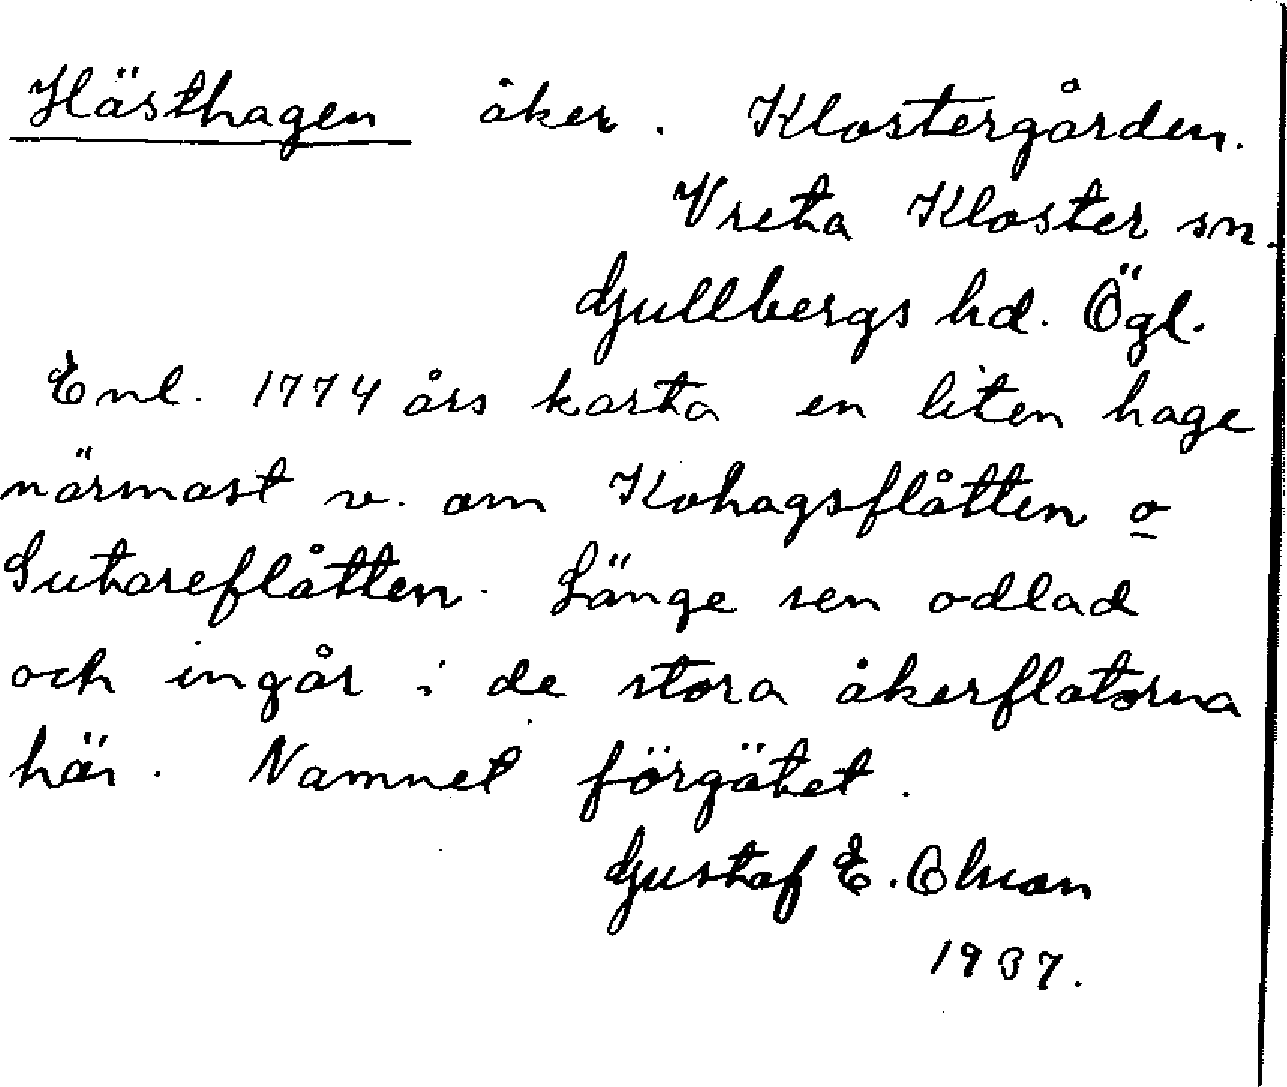 Hästhagen åker. Klostergården.
Vreta Kloster sn.
Gullbergs hd. Ögl.
Enl. 1774 års karta en liten hage
närmast v. om Kohagsflåtten o
Sutareflåtten. Länge sen odlad
och ingår i de stora åkerflatorna
här. Namnet förgätet.
Gustaf E. Olsson
1937.